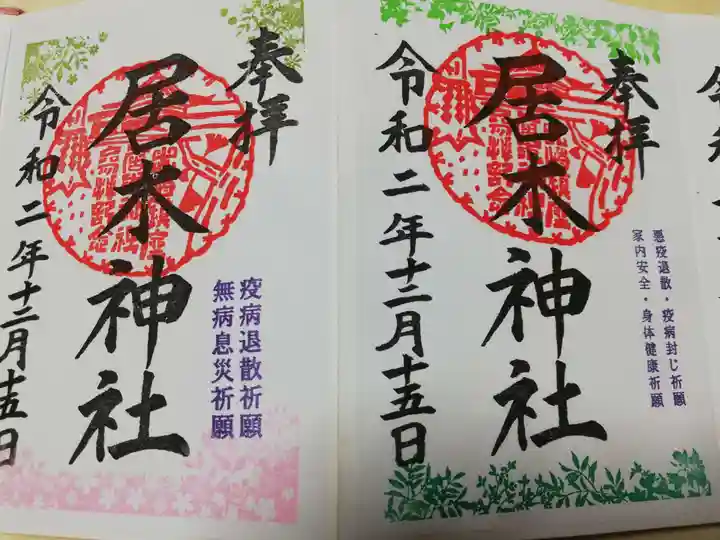 奉拝
居木神社
令和二年十二月十五日
疫病退散祈願
無病息災祈願
奉拝
居木神社
令和二年十二月十五日
悪疫退散・疫病封じ祈願
家内安全・身体健康祈願